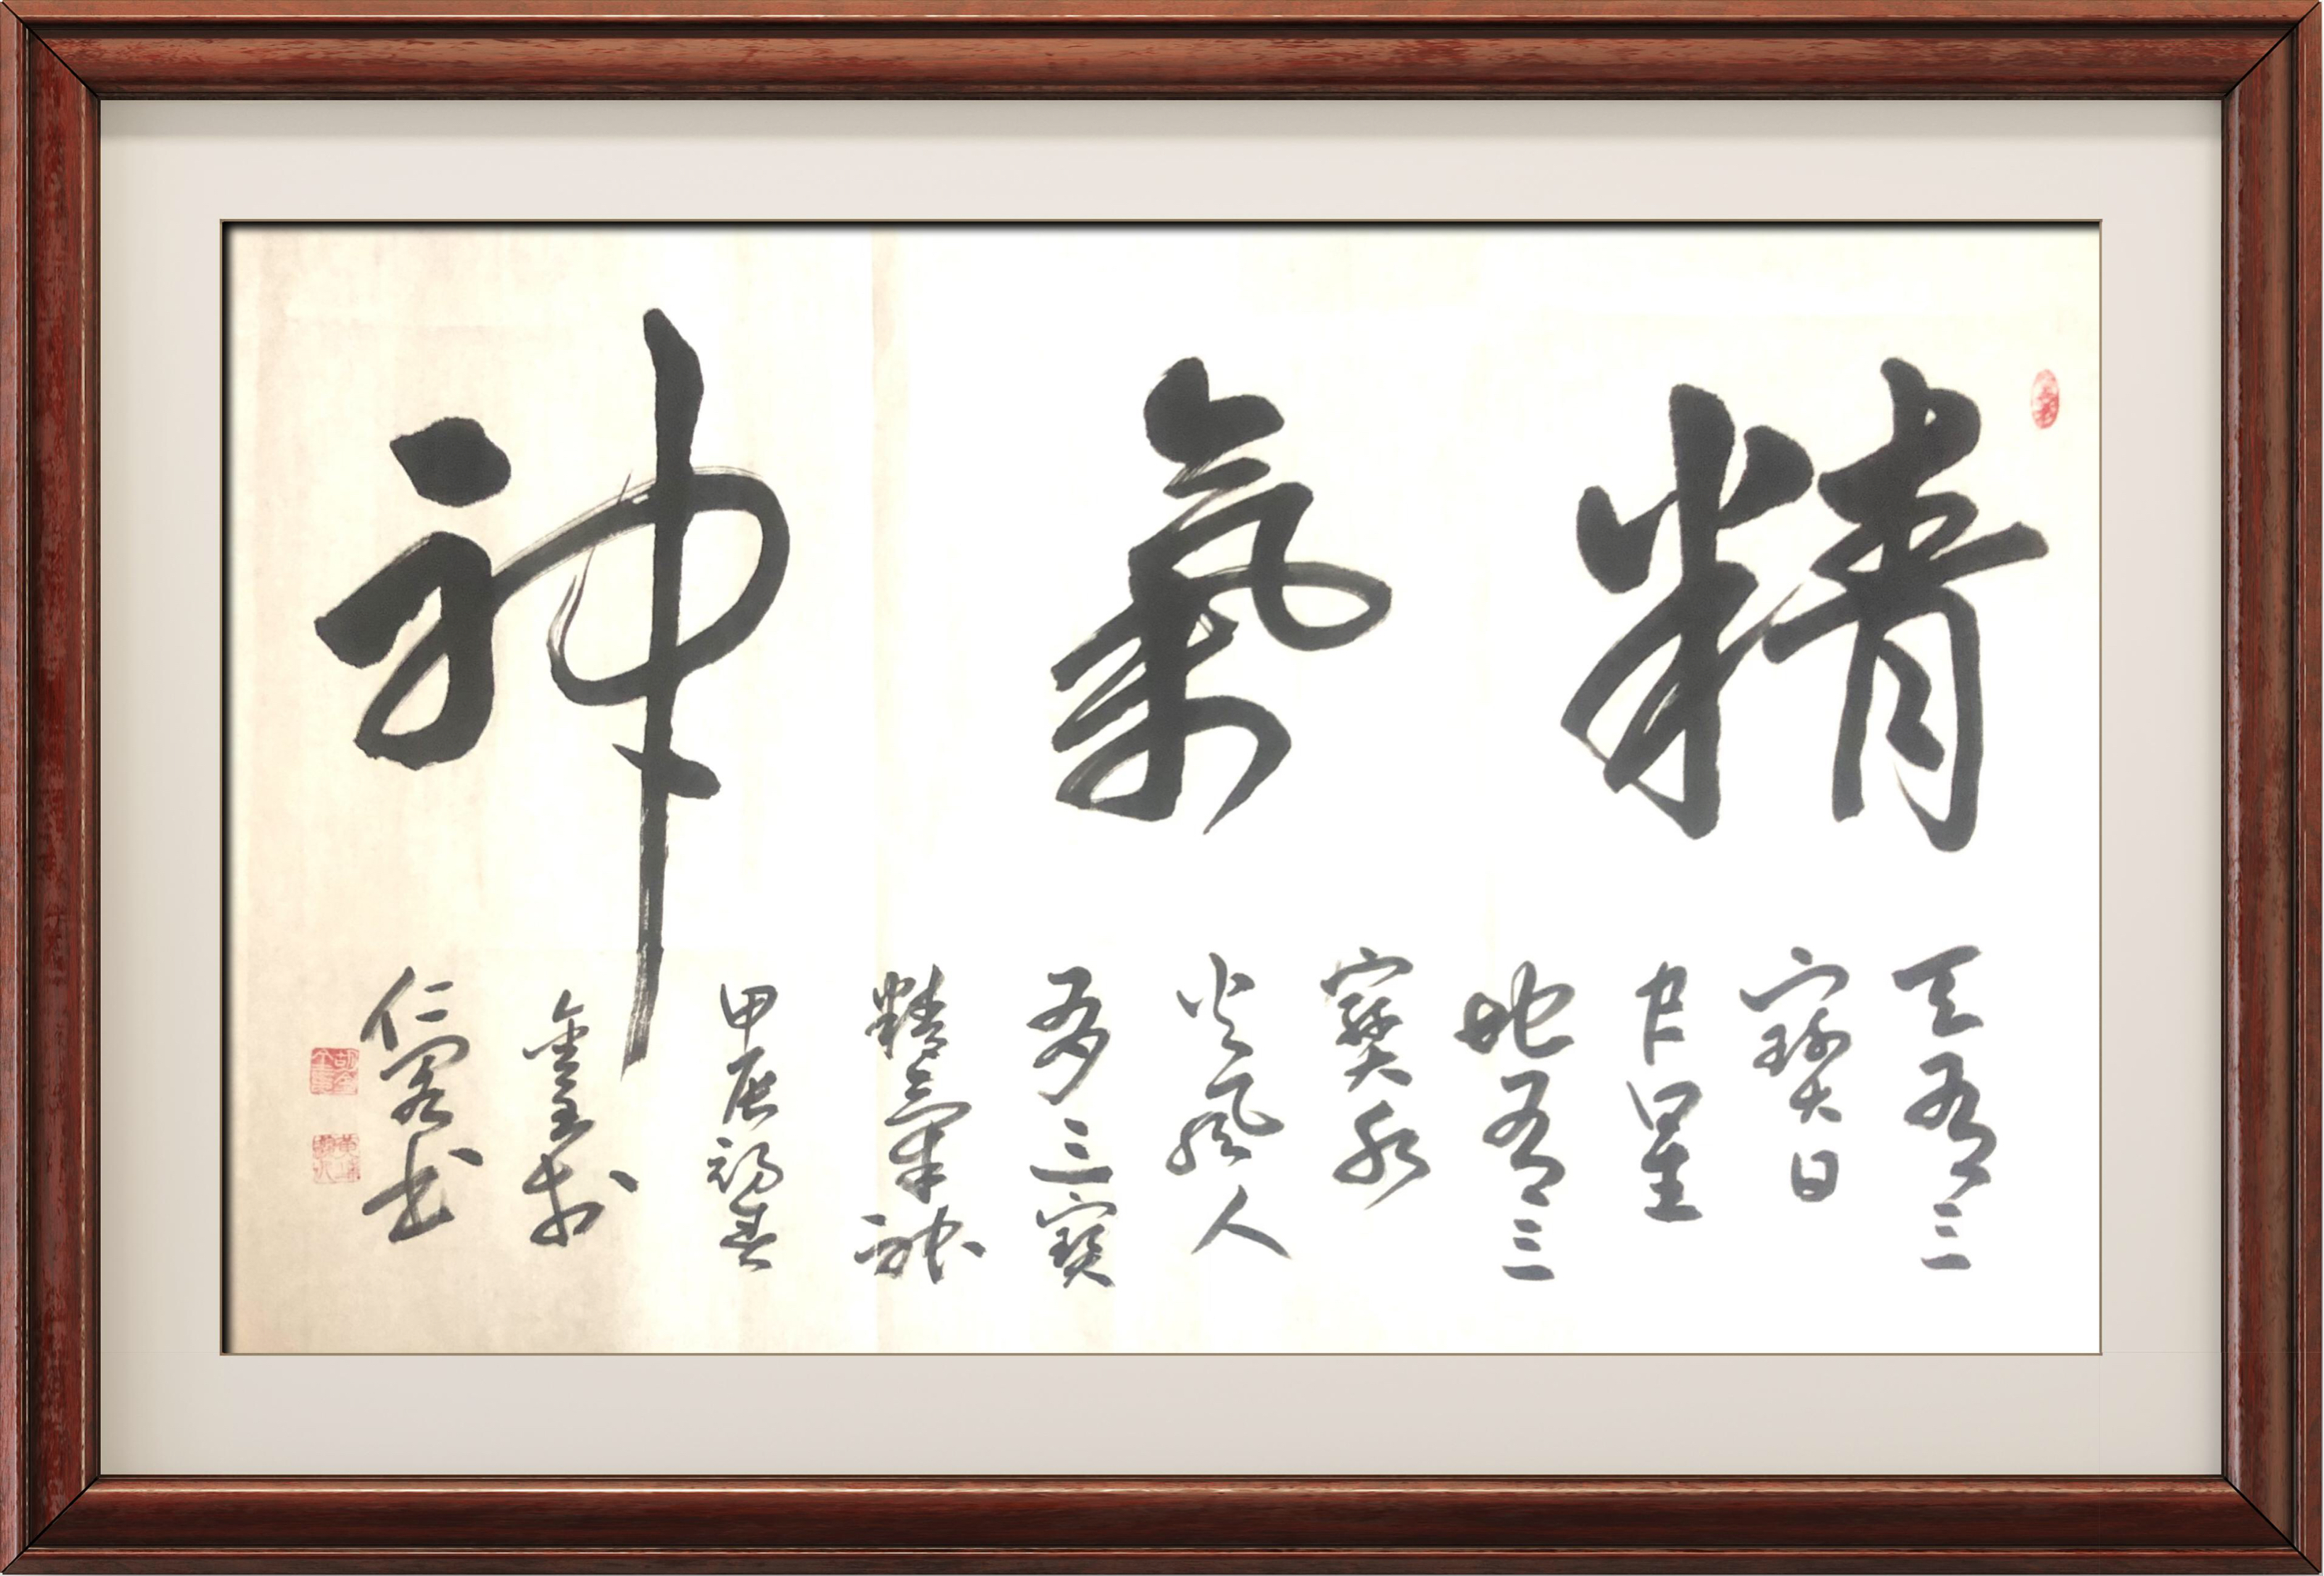 精氣神
天有三
寶日
月星
地有三
寶水
火風人
有三寶
精氣神
甲辰初春
仁書